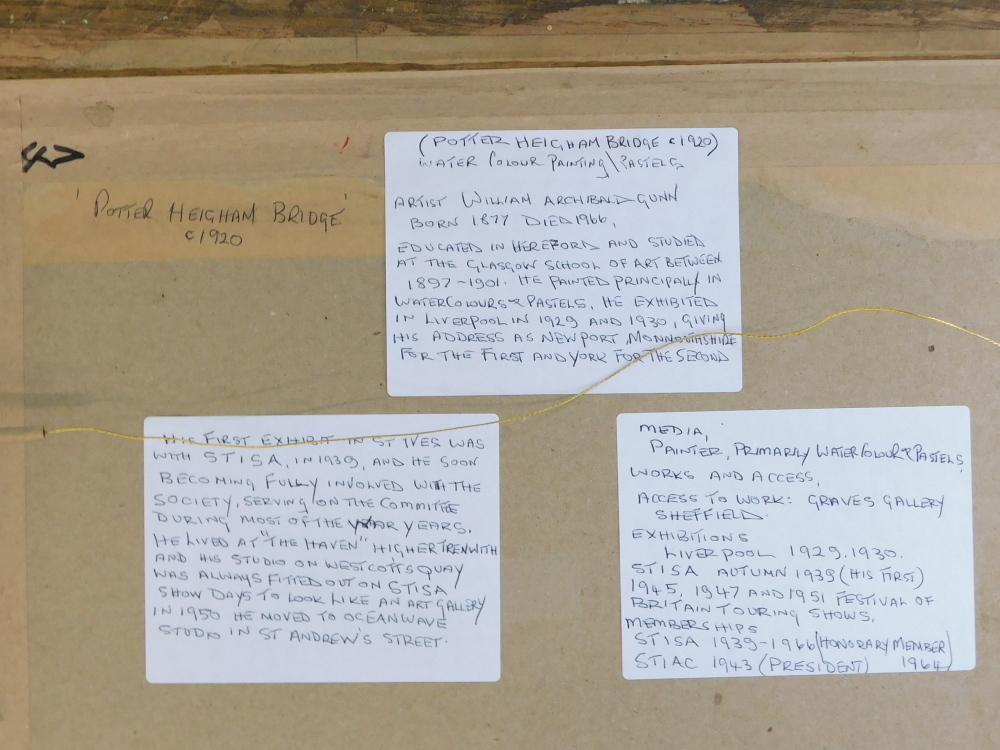 'POTTER HEIGHAM BRIDGE'
c1920
(POTTER HEIGHAM BRIDGE c1920)
WATER COLOUR PAINTING\PASTELS
ARTIST WILLIAM ARCHIBALD GUNN
BORN 1877 DIED 1966,
EDUCATED IN HEREFORD AND STUDIED
AT THE GLASGOW SCHOOL OF ART BETWEEN
1897-1901. HE PAINTED PRINCIPALLY IN
WATERCOLOURS & PASTELS, HE EXHIBITED
IN LIVERPOOL IN 1929 AND 1930, GIVING
HIS ADDRESS AS NEWPORT, MONMOUTHSHIRE
FOR THE FIRST AND YORK FOR THE SECOND
HIS FIRST EXHIBIT IN ST IVES WAS
WITH STISA, IN 1939, AND HE SOON
BECOMING FULLY INVOLVED WITH THE
SOCIETY, SERVING ON THE COMMITTEE
DURING MOST OF THE WAR YEARS.
HE LIVED AT "THE HAVEN" HIGHER TRENWITH
AND HIS STUDIO ON WESTCOTTS QUAY
WAS ALWAYS FITTED OUT ON STISA
SHOW DAYS TO LOOK LIKE AN ART GALLERY
IN 1950 HE MOVED TO OCEAN WAVE
STUDIO IN ST ANDREW'S STREET.
MEDIA,
PAINTER, PRIMARILY WATERCOLOUR & PASTELS,
WORKS AND ACCESS,
ACCESS TO WORK: GRAVES GALLERY
SHEFFIELD.
EXHIBITIONS
LIVERPOOL 1929.1930.
STISA AUTUMN 1939 (HIS FIRST)
1945, 1947 AND 1951 FESTIVAL OF
BRITAIN TOURING SHOWS,
MEMBERSHIPS
STISA 1939-1966 (HONORARY MEMBER)
STIAC 1943 (PRESIDENT) 1964